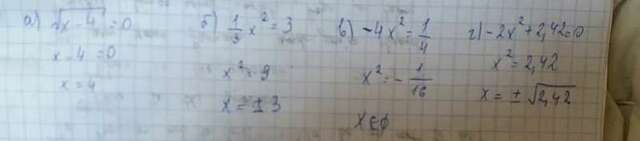 а) √(x-4) = 0
x-4=0
x=4
б) 1/3 x² = 3
x² = 9
x = ± 3
в) -4x² = 1/4
x² = - 1/16
x ∈ ∅
г) -2x² + 2,42 = 0
x² = 2,42
x = ± √2,42